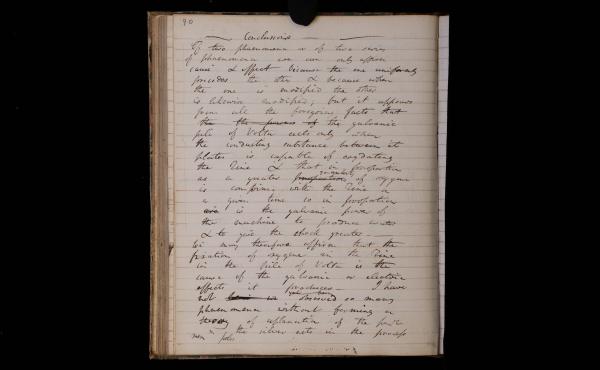 90
Conclusions
Of two phaenomena or of two series
of phaenomena we can only affirm
cause & effect because the one uniformly
precedes the other & because when
the one is modified the other
is likewise modified; but it appears
from all the foregoing facts that
the the power of the galvanic
pile of Volta acts only when
the conducting substance between its
plates is capable of oxydating
the Zinc & that in proportion
as a greater quantity of oxygene
is combining with the Zinc in
a given time so in proportion
is the galvanic power of
the machine to produce
& to give the shock greater —
We may therefore affirm that the
fixation of oxygene in the Zinc
in the pile of Volta is the
cause of the galvanic or electric
effects it produces — I have
not observed so many
phaenomena without forming a
theory of explanation of the
the silver acts in the process